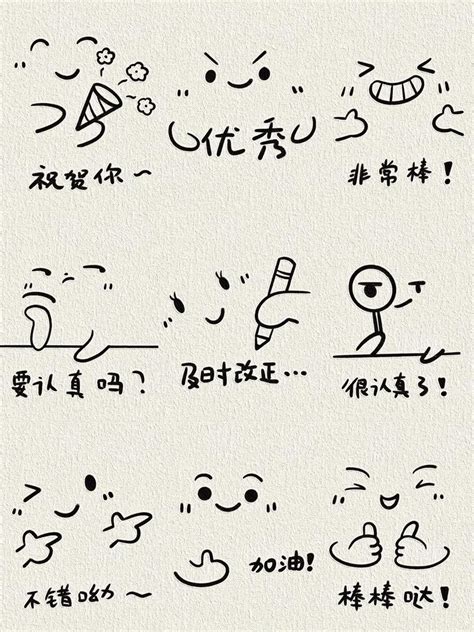 祝贺你~
优秀
非常棒!
要认真吗?
及时改正...
很认真了!
不错呦~
加油!
棒棒哒!